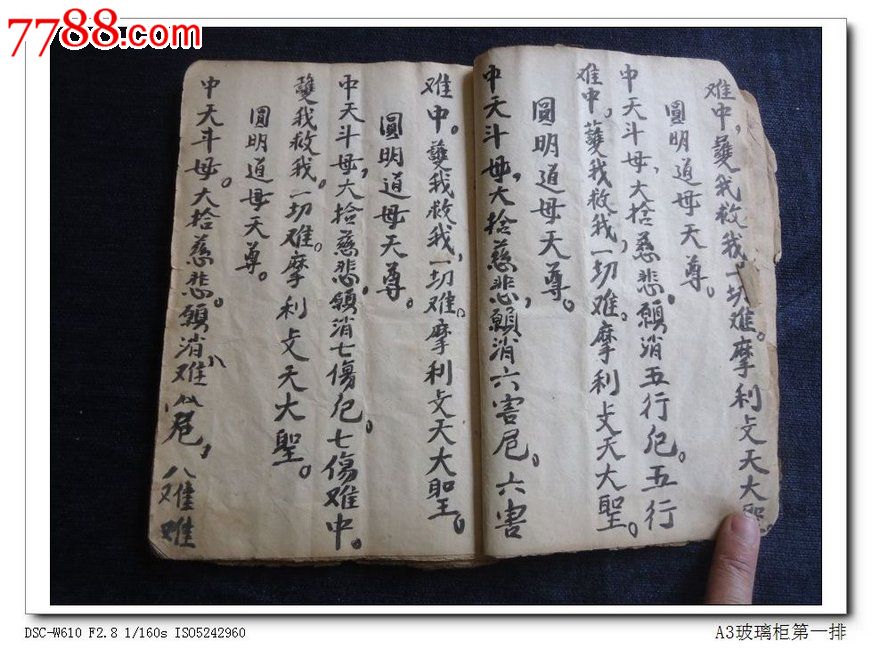 7788.com
难中，䕶我救我。一切难。摩利攴天大聖
圓明道母天尊。
中天斗母，大捨慈悲。願消五行厄。五行
难中。䕶我救我一切难。摩利攴天大聖。
圓明道母天尊。
中天斗母，大捨慈悲，願消六害厄。六害
难中。䕶我救我，一切难。摩利攴天大聖。
圓明道母天尊。
中天斗母，大捨慈悲，願消七傷厄。七傷难中。
䕶我救我。一切难。摩利攴天大聖。
圓明道母天尊。
中天斗母。大捨慈悲。願消八难厄，八难难
DSC-W610 F2.8 1/160s ISO5242960
A3玻璃柜第一排